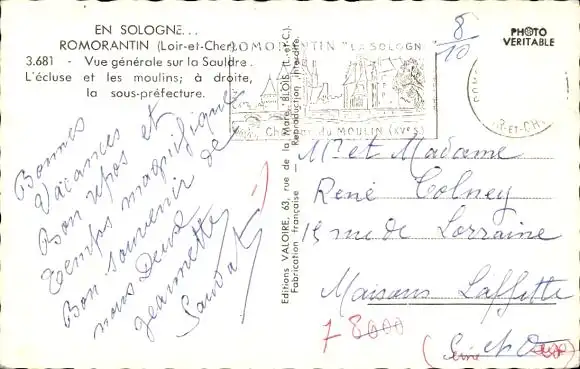 EN SOLOGNE...
ROMORANTIN (Loir-et-Cher)
3.681 - Vue générale sur la Sauldre.
L'écluse et les moulins; à droite,
la sous-préfecture.
ROMORANTIN "LA SOLOGN
Ch du MOULIN (XVe S)
8/10
PHOTO
VERITABLE
R-ET-CH
Bonnes
Vacances
Bon repos et
temps magnifique
Bon souvenir de
nous Deux
Jeannette
Editions VALOIRE, 63, rue de la Mare, BLOIS (L.-et-C.)
Fabrication française - Reproduction interdite.
Mr et Madame
René Colney
15 rue de Lorraine
Maisons Laffitte
78000
(Seine et Oise)